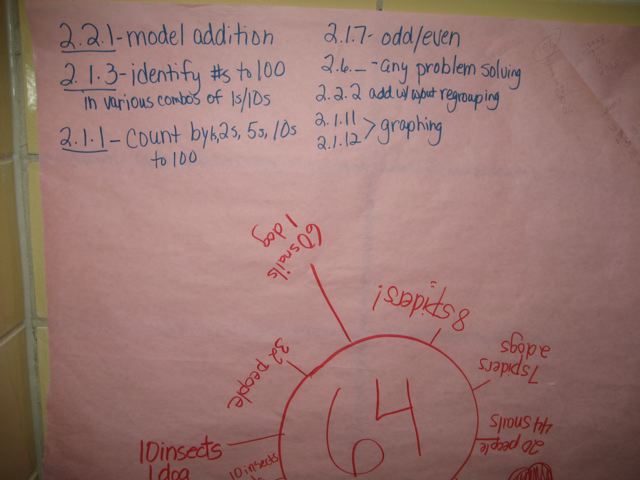 2.2.1-model addition
2.1.3-identify #s to 100
in various combos of 1s/10s
2.1.1-count by 1s, 2s, 5s, 10s
to 100
2.1.7- odd/even
2.6._ -any problem solving
2.2.2 add w/without regrouping
2.1.11
2.1.12 > graphing
60 snails
1 dog
8 spiders!
32 people
7 spiders
2 dogs
64
20 people
44 snails
10 insects
1 dog
10 insects